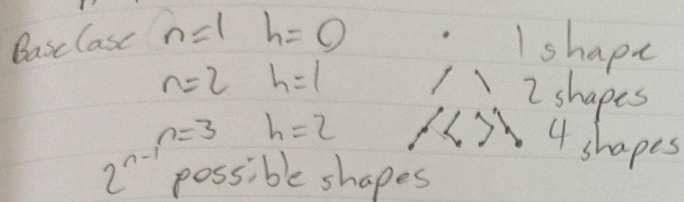 Base Case n=1 h=0 1 shape
n=2 h=1 2 shapes
n=3 h=2 4 shapes
2^{n-1} possible shapes